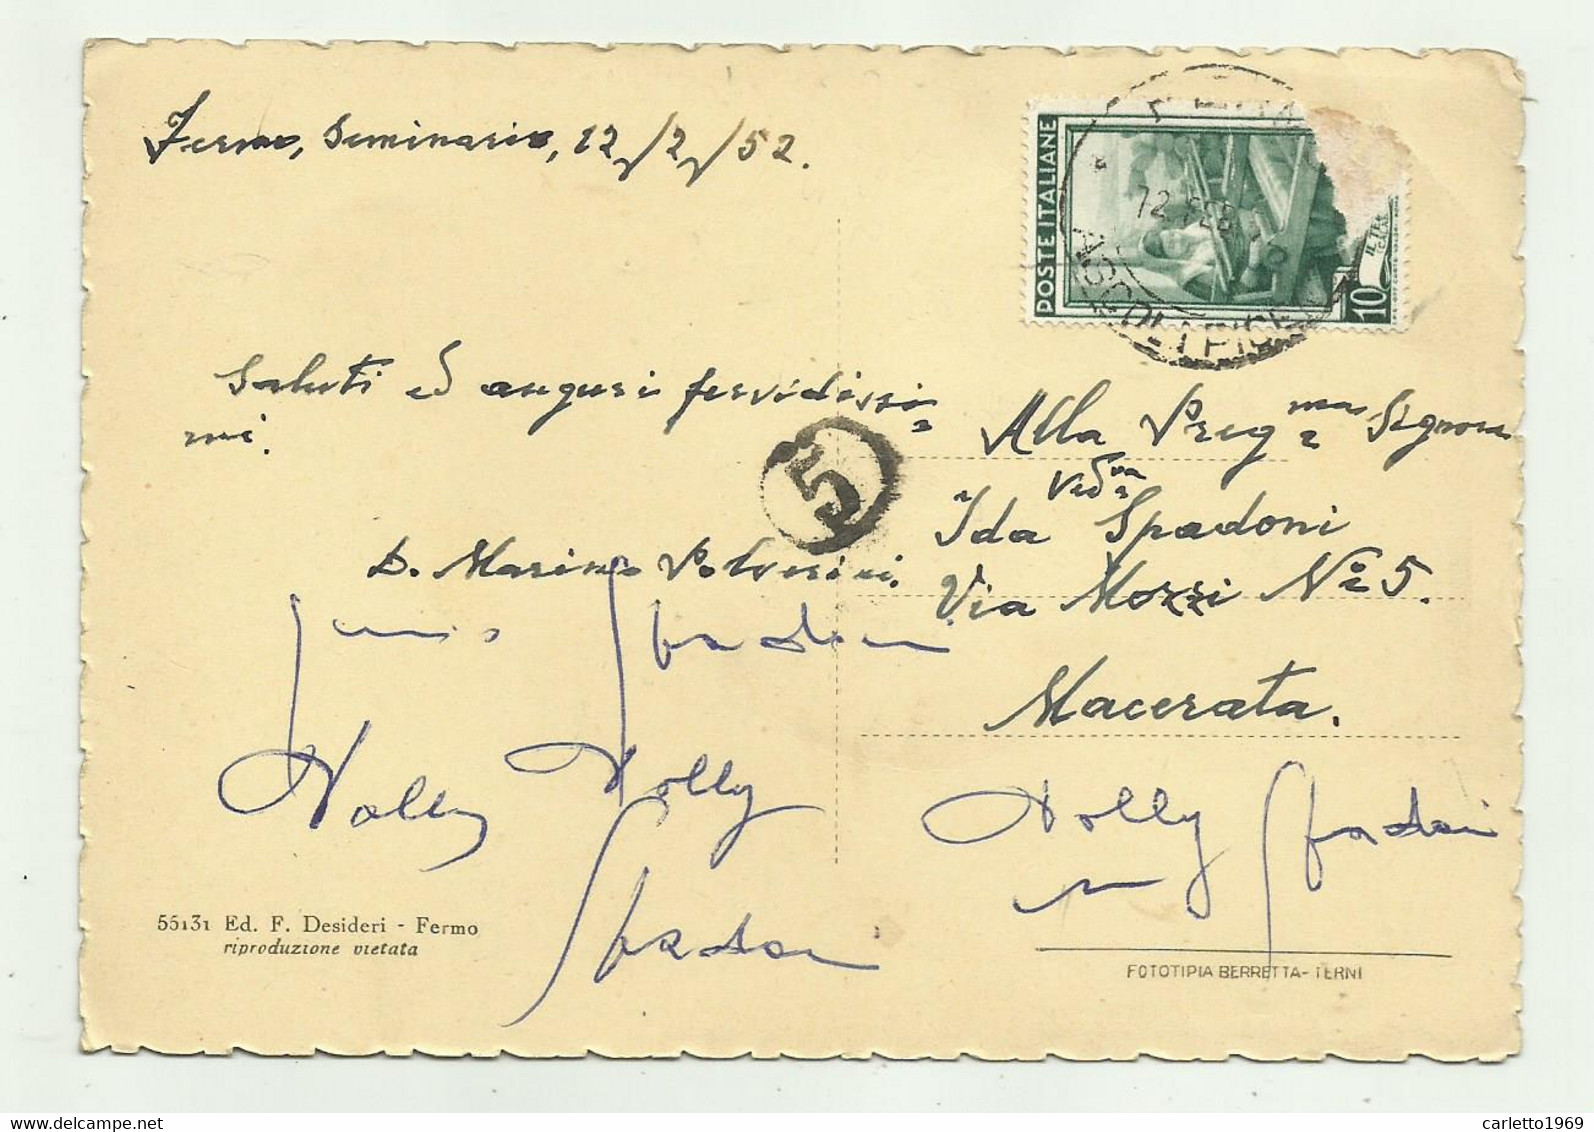 Fermo, Seminario, 12/2/52.
POSTE ITALIANE
10
12 FEB
ASCOLI PICENO
Saluti ed auguri fervidissi=
mi.
5
D. Marino Polverini.
Spadoni
Nolly Nolly
Spadoni
Alla Preg.ma Signora
Ved.va
Ida Spadoni
Via Mozzi No 5.
Macerata.
Nolly Spadoni
55131 Ed. F. Desideri - Fermo
riproduzione vietata
FOTOTIPIA BERRETTA-TERNI
carletto1969